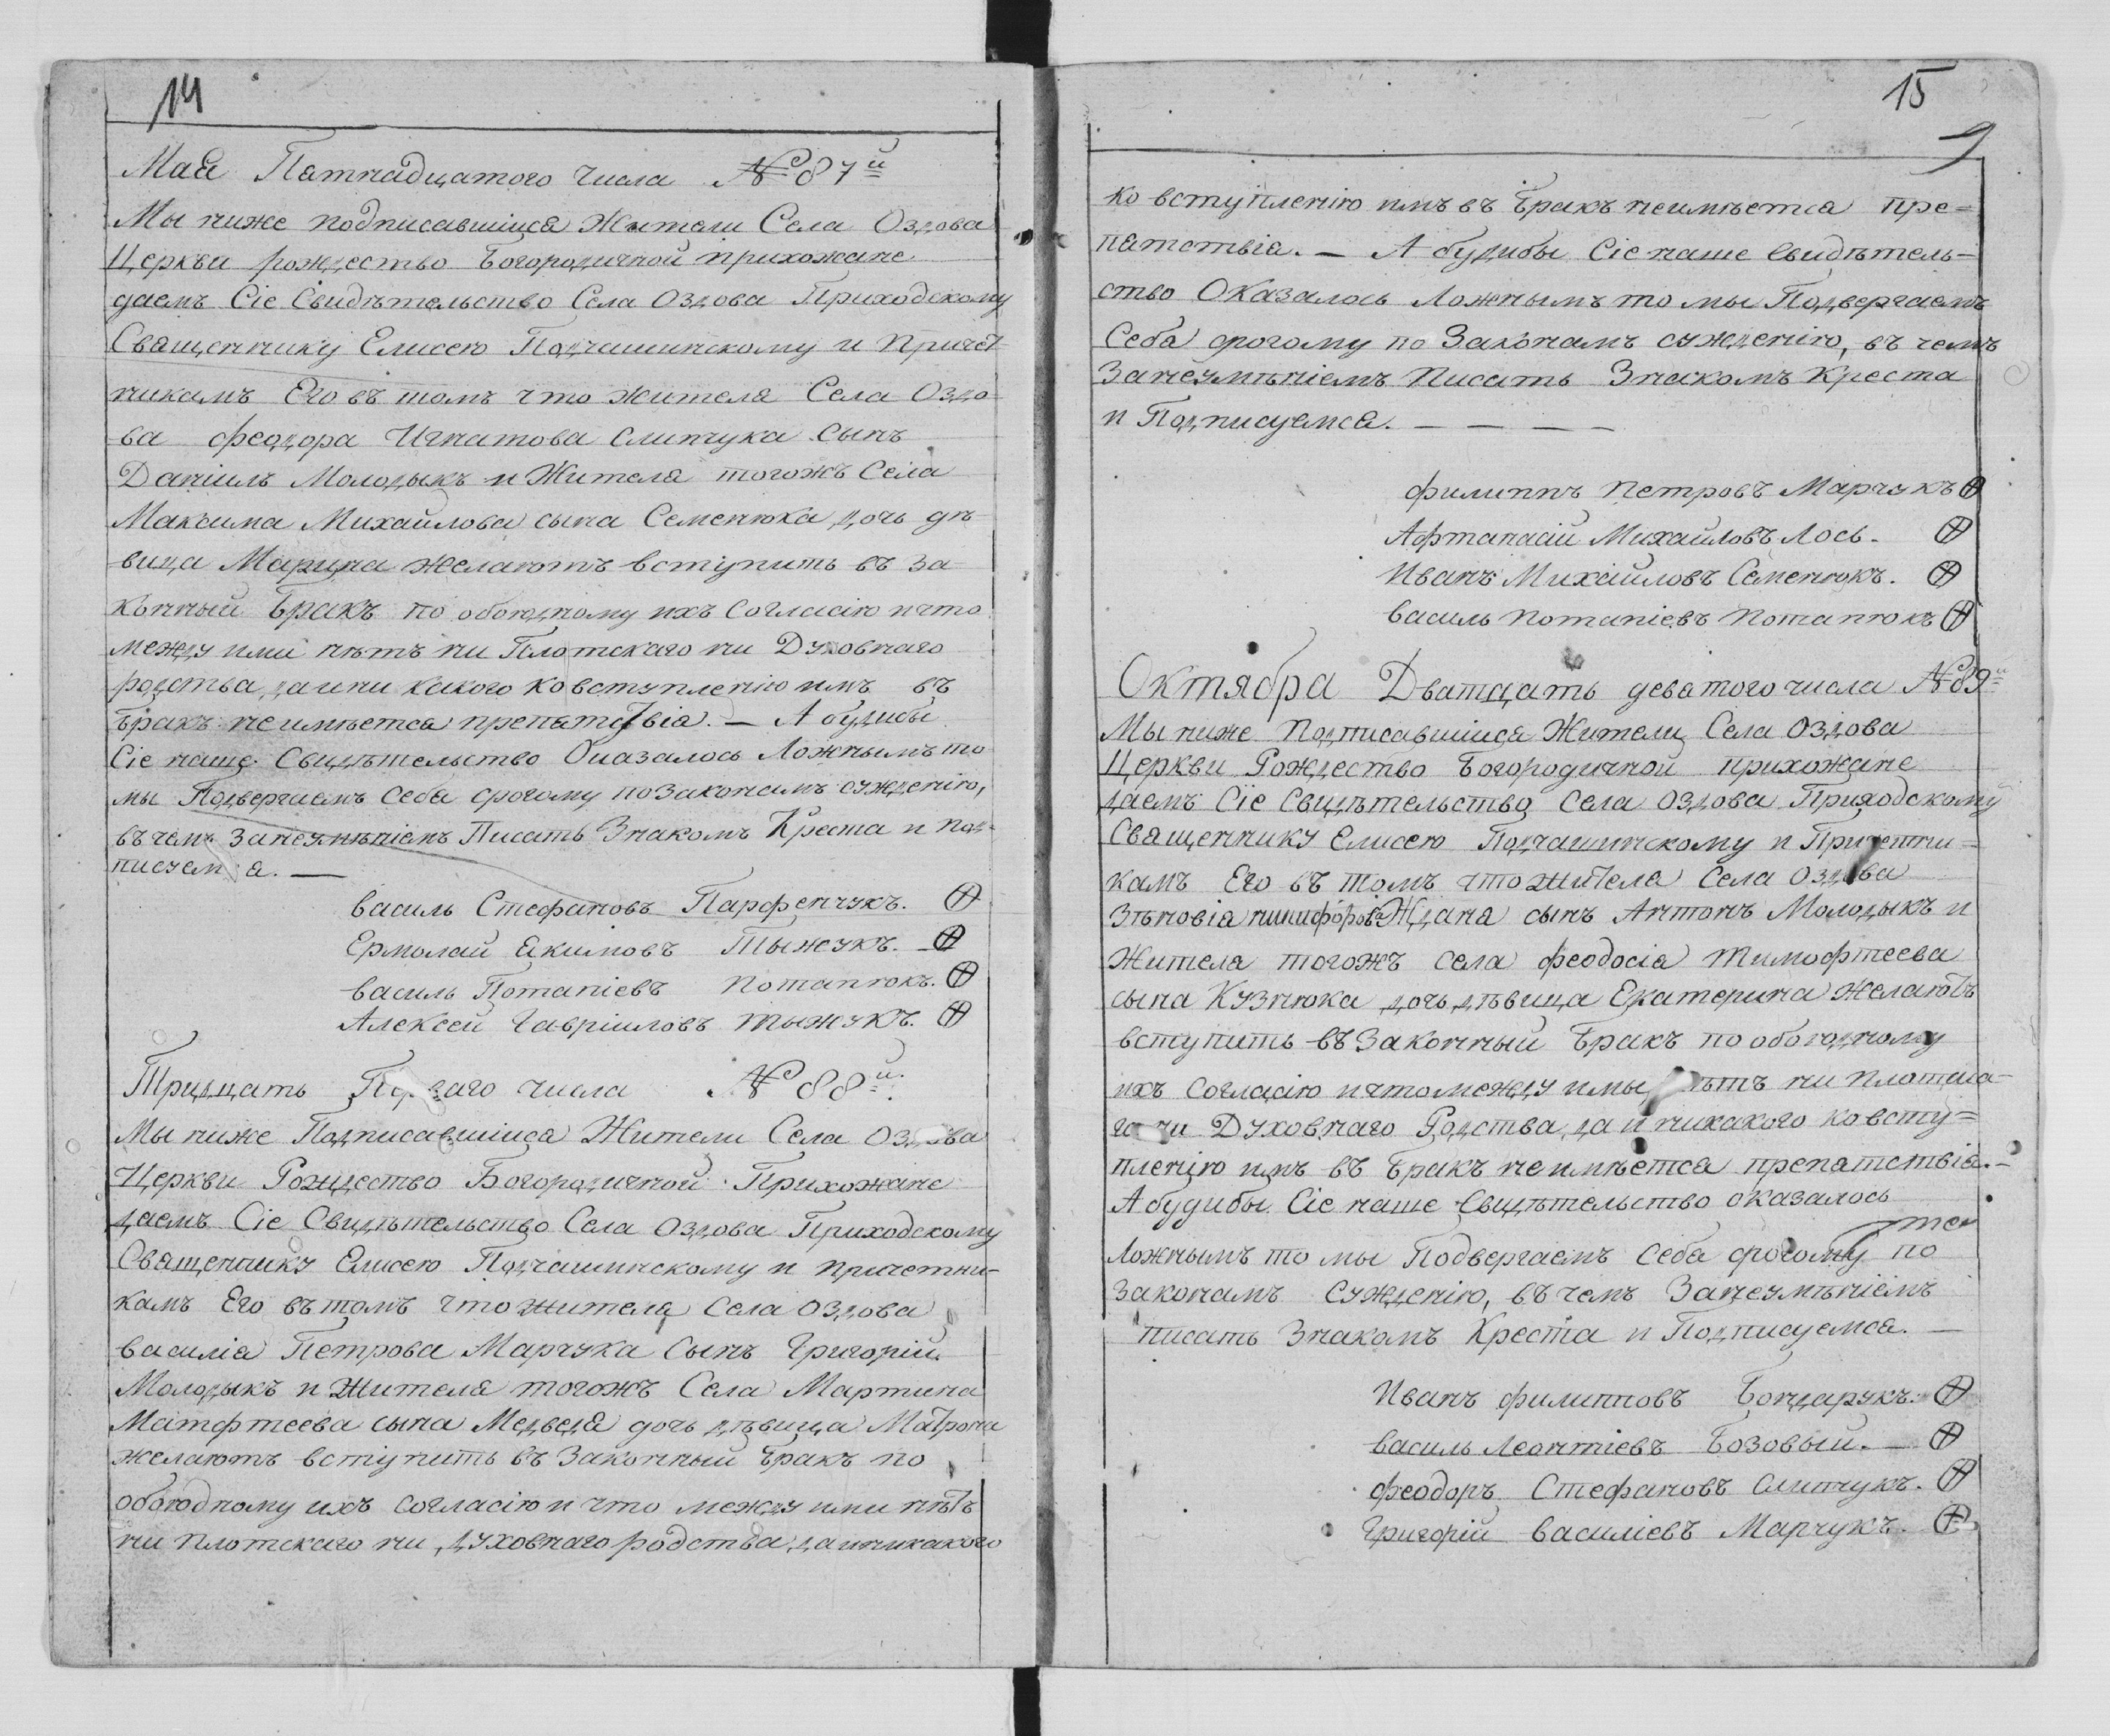 14
Маѧ Патнадцатого Числа №87й
Мы ниже подписавшіися Жители Села Оздова
Церкви рождество Богородичной прихожане
даемъ Сіе Свидѣтельство Села Оздова Приходскому
Священнику Елисею Подчашинскому и Причет
никамъ Его въ томъ что жителя Села Оздо
ва феодора Игнатова Слипчука сынъ
Даніилъ Молодыкъ и Жителя тогожъ Села
Максима Михайлова сына Семенюка дочь дѣ
вица Марина желаютъ вступить въ за
конный Бракъ по обоюдному ихъ согласію и что
между ими нѣтъ ни Плотскаго ни Духовнаго
родства, да и ни какого ко вступленію имъ въ
Бракъ неимѣетса препятствія. — А будибы
Сіе наше Свидѣтельство Оказалось Ложнымъ то
мы Подвергаемъ себя срогому по законамъ сужденію,
въ чемъ занеумѣніемъ Писать Знакомъ Креста и под-
писуемся. —
василь Стефановъ Парфенчукъ. ⊕
Ермолай Якимовъ Тыжукъ. ⊕
василь Потапіевъ Потапюкъ. ⊕
Алексей Гавріиловъ тыжукъ. ⊕
Тридцать Перваго числа №88й.
Мы ниже Подписавшіися Жители Села Оздова
Церкви Рождество Богородичной Прихожане
даемъ Сіе Свидѣтельство Села Оздова Приходскому
Священнику Елисею Подчашинскому и причетни-
камъ Его въ томъ что жителя Села Оздова
василія Петрова Марчука Сынъ Григорій
Молодыкъ и жителя тогожъ Села Мартина
Матфтеева сына Медведя дочь дѣвица Матрона
желаютъ вступить въ Законный Бракъ по
обоюдному ихъ согласію и что между ими нѣтъ
ни плотскаго ни духовнаго родства, да и никакого
15
9
ко вступленію имъ въ Бракъ неимѣетса пре=
пятствія. — А будибы Сіе наше Свидѣтель-
ство Оказалось Ложнымъ то мы Подвергаемъ
Себя срогому по Законамъ сужденію, въ чемъ
Занеумѣніемъ Писать Знакомъ Креста
и Подписуемса. — — — —
филиппъ Петровъ Марчукъ ⊕
Афтанасій Михайловъ Лось. ⊕
Иванъ Михайловъ Семенюкъ. ⊕
василь Потапіевъ Потапюкъ ⊕
Октября Дватцать деватого числа №89й
Мы ниже Подписавшіися Жители Села Оздова
Церкви Рождество Богородичной прихожане
даемъ Сіе Свидѣтельство села Оздова Приходскому
Священнику Елисею Подчашинскому и Причетни=
камъ Его въ томъ что жителя Села Оздова
Зѣновія никифорова Ждана сынъ Антонъ Молодыкъ и
Жителя тогожъ села феодосія Тимофтеева
сына Кузнюка дочь дѣвица Екатерина желаютъ
вступить въ Законный Бракъ по обоюдному
ихъ согласію и что между имы нѣтъ ни плотска-
го ни Духовнаго Родства, да и никакого ко всту=
пленію имъ въ Бракъ неимѣетса препятствія. —
А будибы Сіе наше Свидѣтельство оказалось
Ложнымъ то мы Подвергаемъ себя срогому по
законамъ сужденію, въ чемъ Занеумѣніемъ
писать Знакомъ Креста и Подписуемса. —
Иванъ филипповъ Бондарукъ. ⊕
василь Леонтіевъ Бозовый. — ⊕
феодоръ Стефановъ слипчукъ. ⊕
Григорій василіевъ Марчукъ. ⊕